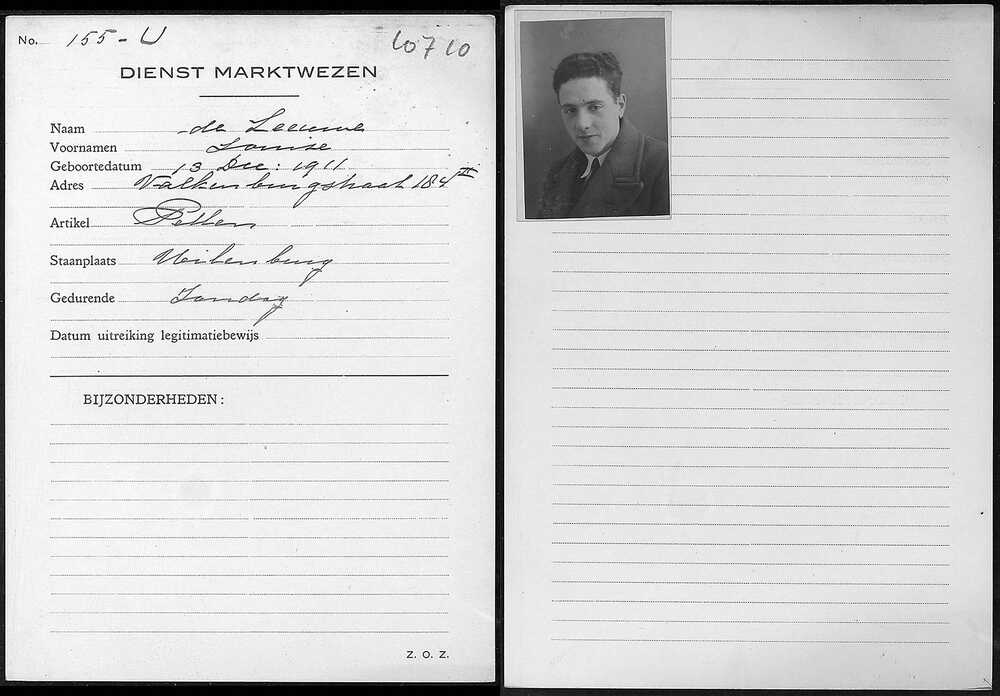 No. 155-U
10710
DIENST MARKTWEZEN
Naam de Leeuwe
Voornamen Louise
Geboortedatum 13 Dec: 1911
Adres Valkenburgstraat 184 II
Artikel Petten
Staanplaats Uilenburg
Gedurende Zondag
Datum uitreiking legitimatiebewijs
BIJZONDERHEDEN:
Z. O. Z.